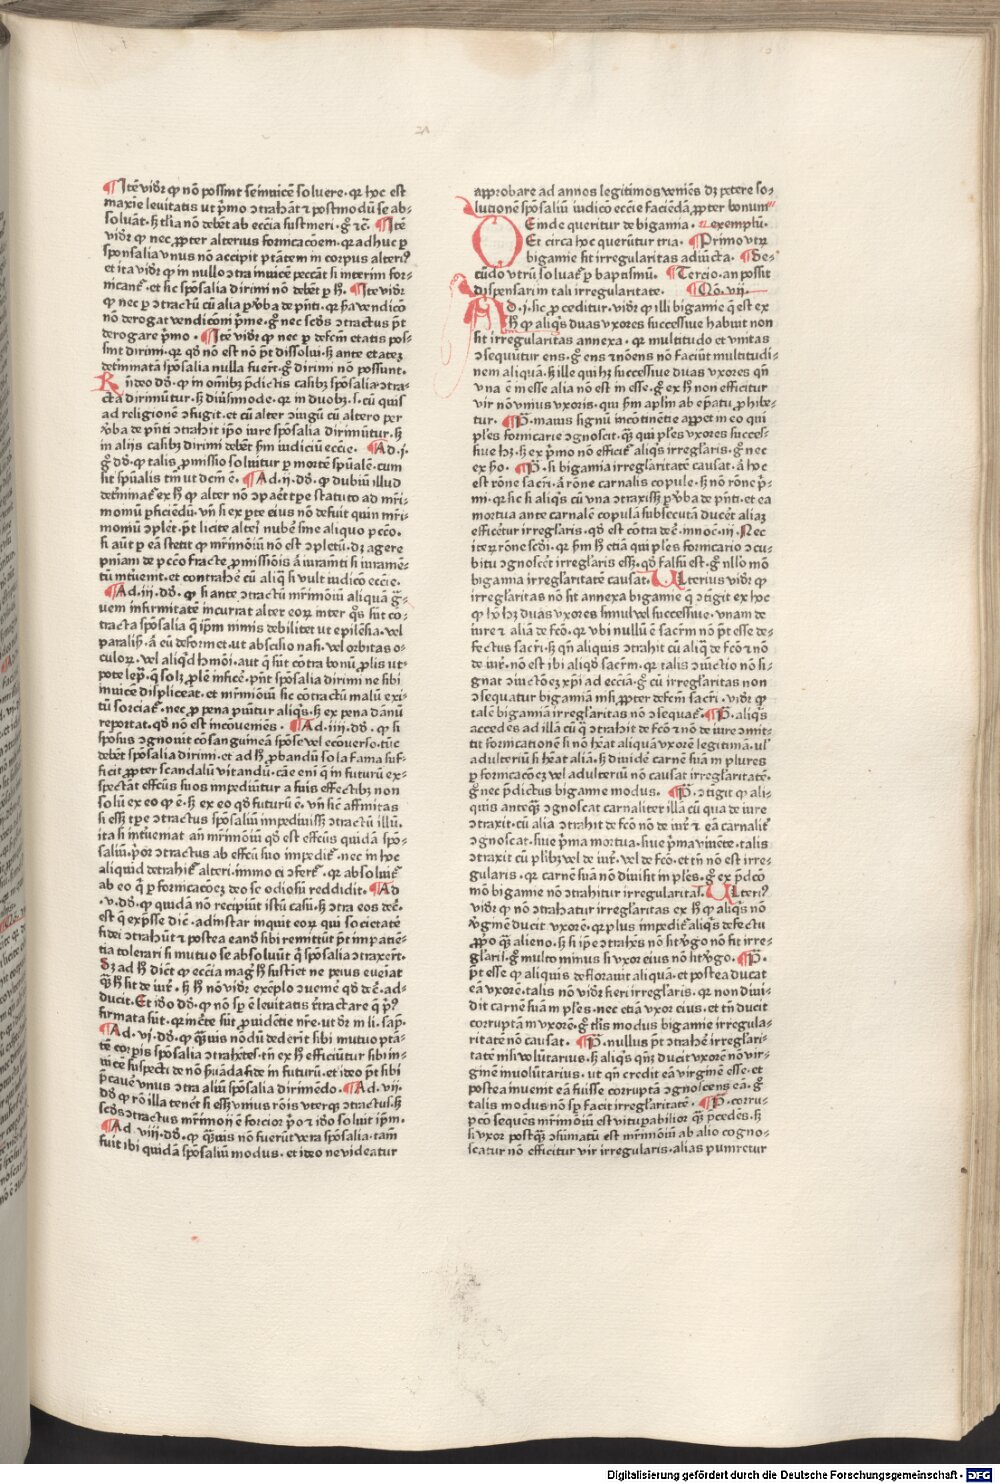 ¶Itē vidr̄ ꝙ nō possint seinuicē soluere · qr hoc est
maxie leuitatis ut pͥmo ↄtrahāt ⁊ postmodū se ab-
soluāt · Ꜩ tlia nō debēt ab ecc̄ia sustineri · gͦ ⁊c̄ · ¶Itē
vidr̄ ꝙ nec ꝓpter alterius fornicac̄oem · qr adhuc p
sponsalia vnus non accipit ptātem in corpus alteriꝰ
et ita vidr̄ ꝙ in nullo ↄtra inuicē peccāt si interim for-
nicant̄ · et sic sponsalia dirimi nō debēt p ħ · ¶Itē vidr̄
ꝙ nec p ↄtractū cū alia p vͤba de pn̄ti · qr
nō derogat vendic̄oni pͥme · gͦ nec scd̄s ↄtractus pt̄
derogare pͥmo · ¶Itē vidr̄ ꝙ nec p defectū etatis pos-
sint dirimi · qr qd̄ nō est nō pt̄ dissolui · Ꜩ ante etatez
det̄minatā spōsalia nulla fuer̄t · gͦ dirimi nō possunt ·
Rn̄deo dd̄ · ꝙ in om̄ibꝫ pͥdictis casibꝫ spōsalia ↄtra-
cta dirimūtur · Ꜩ diūsimode · qr in duobꝫ · s · cū quis
ad religionē ↄfugit · et cū alter ↄiugū cū altero per
vͤba de pn̄ti ↄtrahit ip̄o iure spōsalia dirimūtur · Ꜩ
in alijs casibꝫ dirimi debēt ẜm iudiciū ecc̄ie · ¶Ad · j ·
gͦ dd̄ · ꝙ talis ꝓmissio soluitur p mortē spūalē · cum
sit spūalis tm̄ ut dcm̄ ē · ¶Ad · ij · dd̄ · ꝙ dubiū illud
det̄minat̄ ex ħ ꝙ alter nō ↄpaēt tp̄e statuto ad mr̄i-
moniū pficiēdū · vn̄ si ex pte eius nō defuit quin mr̄i-
moniū ↄplēt · pt̄ licite alteri nubē sine aliquo pcc̄o ·
si aūt p eā stetit ꝙ mr̄imōiū nō est ↄpletū · dꝫ agere
pniam de pcc̄o fracte ꝓmissiōis
tū īt̄uenit · et contrahē cū aliꝗ si vult iudico ecc̄ie ·
¶Ad · iij · dd̄ · ꝙ si ante ↄtractū mr̄imōiū aliquā gͣ-
uem infirmitatē incurrat alter eoꝝ inter qͦs sūt co-
tracta spōsalia ꝗ ip̄m nimis debilitet ut epilēsia · vel
paralisis · ā eū deformet · ut abscisio nasi · vel orbitas o-
culoꝝ · vel aliqͥd hmōi · aut ꝗ sūt cōtra bonū ꝓlis ut-
pote lepͣ · ꝗ solꝫ ꝓlē inficē · pn̄t spōsalia dirimi ne sibi
inuicē displiceat · et mr̄imōiū sic cōtractū malū exi-
tū sorciat̄ · nec ꝓ pena punitur aliqͥs · Ꜩ ex pena dānū
reportat · qd̄ nō est incōueniēs · ¶Ad · iiij · dd̄ · ꝙ si
spōsus ↄgnouit cōsanguineā spōse vel ecōuerso · tūc
debēt spōsalia dirimi · et ad ħ ꝓbandū sola fama suf-
ficit ꝓpter scandalū vitandū · cāe eni ꝗ in futurū ex-
spectāt effectus suos impediūtur a suis effectibꝫ non
solū ex eo ꝙ ē · Ꜩ ex eo qd̄ futurū ē · vn̄ sic affinitas
si essꝫ tp̄e ↄtractus spōsaliū impediuissꝫ ↄtractū illū ·
ita si int̄ueniat an̄ mr̄imōiū qd̄ est effectus quidā spō-
saliū · pͥor ↄtractus ab effcū suo impedit̄ · nec in hoc
aliquid detrahit̄ alteri · immo ei ↄfert̄ · qr absoluit̄
ab eo ꝗ p fornicac̄oez deo se odiosū reddidit · ¶Ad
· v · dd̄ · ꝙ quidā nō recipiūt istū casū · Ꜩ ↄtra eos dec̄ ·
est ꝗ expͥsse dic̄ · ad instar inquit eoꝝ qui societatē
fidei ↄtrahūt ⁊ postea eandē sibi remittūt pt̄ in patiē-
tia tolerari si mutuo se absoluūt ꝗ spōsalia ↄtraxer̄t ·
Ꜩ ad ħ dic̄t ꝙ ecc̄ia mag ħ sustiet ne peius eueniat
qͣꝫ ħ sit de iur̄ · Ꜩ ħ nō vidr̄ exēplo ↄuenie qd̄ dec̄ · ad-
ducit · Et iō dd̄ · ꝙ nō sꝑ ē leuitatis retͣctare ꝗ pͥꝰ
firmata sūt · qr incerte sūt ꝓuidētie nr̄e · ut dr̄ in li · sap̄ ·
¶Ad · vj · dd̄ · ꝙ qͣuis nōdū dederit sibi mutuo ptā-
tē corpis spōsalia ↄtrahētes · tn̄ ex ħ efficiūtur sibi in-
uicē suspecti de nō fide in futurū · et ideo pt̄ sibi
pͥcauē vnus ↄtra aliū spōsalia dirimēdo · ¶Ad · vij ·
dd̄ ꝙ rō illa tenēt si essꝫ vnius rōis vterqꝫ ↄtractus · Ꜩ
scd̄s ↄtractus mr̄imonij ē forcior pͥo ⁊ iō soluit ip̄m ·
¶Ad · viij · dd̄ · ꝙ qͣuis nō fuerūt vera spōsalia · tam̄
fuit ibi quidā spōsaliū modus · et ideo ne videatur
approbare ad annos legitimos veniēs dꝫ petere so-
lutionē spōsaliū iudico ecc̄ie faciēdā ꝓpter bonum
Deinde queritur de bigamia · exemplū ·
Et circa hoc querūtur tria · ¶Primo vtꝝ
bigamie sit irregularitas adiūcta · ¶Se-
cūdo vtrū soluat̄ p baptismū · ¶Tercio · an possit
dispensari in tali irregularitate · ¶Qō · vij ·
Ad · j · sic ꝓceditur · vidr̄ ꝙ illi bigamie ꝗ est ex
ħ ꝙ aliqͥs duas vxores successiue habuit non
sit irregularitas annexa · qr multitudo et vnitas
ↄsequūtur ens · gͦ ens ⁊ nōens nō faciūt multitudi-
nem aliquā · Ꜩ ille qui hꝫ successiue duas vxores qn̄
vna ē in esse alia nō est in esse · gͦ ex ħ non efficitur
vir nō vnius vxoris · qui ẜm apl̄m ab epatu ꝓhibe-
tur · ¶P̄ · maius signū incōtinētie appet in eo qui
ples fornicarie ↄgnoscit · qͣꝫ qui ples vxores succes-
siue hꝫ · Ꜩ ex pͥmo nō efficit̄ aliqͥs irreglaris · gͦ nec
ex scd̄o · ¶P̄ · si bigamia irreglaritatē causat · ā hoc
est rōne sacri · ā rōne carnalis copule · Ꜩ nō rōne pͥ-
mi · qr sic si aliqͥs cū vna ↄtraxissꝫ p vͤba de pn̄ti · et ea
mortua ante carnalē copulā subsecutā ducēt aliaz
efficētur irreglaris · qd̄ est cōtra dec̄ · innoc̄ · iij · Nec
iteꝝ rōne scd̄i · qr ẜm ħ etiā qui ples fornicario ↄcu-
bitu ↄgnoscēt irreglaris essꝫ · qd̄ falsū est · gͦ nllo mō
bigamia irreglaritatē causat · Ulterius vidr̄ ꝙ
irreglaritas nō sit annexa bigamie ꝗ ↄtigit ex hoc
ꝙ hō hꝫ duas vxores simul vel successiue · vnam de
iure ⁊ aliā de fcō · qr vbi nullū ē sacrm̄ nō pt̄ esse de-
fectus sacri · Ꜩ qn̄ aliquis ↄtrahit cū aliꝗ de fcō ⁊ nō
de iur̄ · nō est ibi aliqd̄ sacrm̄ · qr talis ↄiūctio nō si-
gnat ↄiūctōez xp̄i ad ecc̄iā · gͦ cū irreglaritas non
ↄsequatur bigamiā nisi ꝓpter defcm̄ sacri · vidr̄ ꝙ
talē bigamiā irreglaritas nō ↄsequat̄ · ¶P̄ · aliqͥs
accedēs ad illā cū ꝗ ↄtrahit de fcō ⁊ nō de iure ↄmit-
tit fornicationē si nō hēat aliquā vxorē legitimā · ul̄
adulteriū si hēat aliā · Ꜩ diuidē carnē suā in plures
p fornicac̄oez vel adulteriū nō causat irreglaritatē ·
gͦ nec pͥdictus bigamie modus · ¶P̄ · ↄtigit ꝙ ali-
quis anteqͣꝫ ↄgnoscat carnaliter illā cū qua de iure
ↄtraxit · cū alia ↄtrahit de fcō nō de iur̄ ⁊ eā carnalit̄
ↄgnoscat · siue pͥma mortua · siue pͥma viuēte · talis
ↄtraxit cū plibꝫ vel de iur̄ · vel de fcō · et tn̄ nō est irre-
gularis · qr carnē suā nō diuisit in ples · gͦ ex pͥdco
mō bigamie nō ↄtrahitur irregularitas · Ulteriꝰ
vidr̄ ꝙ nō ↄtrahatur irreglaritas ex ħ ꝙ aliqͥs nō
vͥginē ducit vxorē · qr plus impedit̄ aliqͥs defectu
ꝓpͥo qͣꝫ alieno · Ꜩ si ip̄e ↄtrahēs nō sit vͥgo nō fit irre-
glaris · gͦ multo minus si vxor eius nō sit vͥgo · ¶P̄ ·
pt̄ esse ꝙ aliquis deflorauit aliquā · et postea ducat
eā vxorē · talis nō vidr̄ fieri irreglaris · qr non diui-
dit carnē suā in ples · nec etiā vxor eius · et tn̄ ducit
corruptā in vxorē · gͦ tlis modus bigamie irregula-
ritatē nō causat · ¶P̄ · nullus pt̄ ↄtrahē irreglari-
tatē nisi volūtarius · Ꜩ aliqͥs qn̄qꝫ ducit vxorē nō vir-
ginē inuolūtarius · ut qn̄ credit eā virginē esse · et
postea inuenit eā fuisse corruptā ↄgnoscens eā · gͦ
talis modus nō sꝑ facit irreglaritatē · ¶P̄ · corru-
pco sequēs mr̄imōiū est vituꝑabilior qͣꝫ pͥcedēs · Ꜩ
si vxor postqͣꝫ ↄsūmatū est mr̄imōiū ab alio cogno-
scatur nō efficitur vir irregularis · alias puniretur
Digitalisierung gefördert durch die Deutsche Forschungsgemeinschaft - DFG